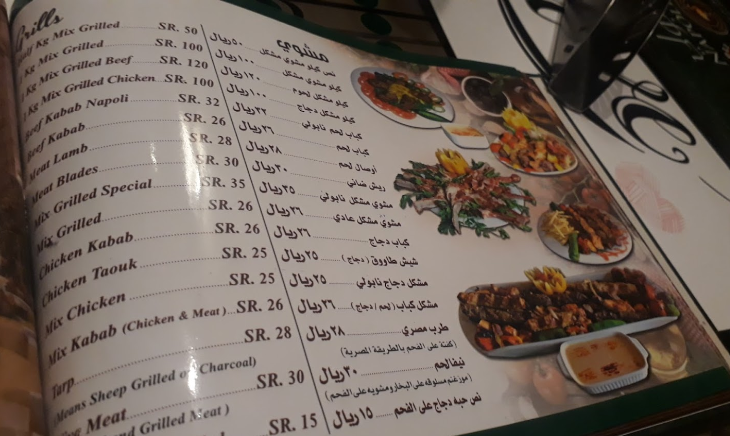 Grills
Kg Mix Grilled SR. 50
Kg Mix Grilled SR. 100
Kg Mix Grilled Beef SR. 120
Kg Mix Grilled Chicken SR. 100
Beef Kabab Napoli SR. 32
Beef Kabab SR. 26
Meat Lamb SR. 28
Meat Blades SR. 30
Mix Grilled Special SR. 35
Mix Grilled SR. 26
Chicken Kabab SR. 26
Chicken Taouk SR. 25
Mix Chicken SR. 25
Mix Kabab (Chicken & Meat) SR. 26
Tarp SR. 28
(Means Sheep Grilled on Charcoal)
Meat SR. 30
and Grilled Meat)
SR. 15
مشوي
نص كيلو مشوي مشكل ٥٠ ريال
كيلو مشوي مشكل ١٠٠ ريال
كيلو مشكل لحوم ١٢٠ ريال
كيلو مشكل دجاج ١٠٠ ريال
كباب لحم نابولي ٣٢ ريال
كباب لحم ٢٦ ريال
أوصال لحم ٢٨ ريال
ريش ضاني ٣٠ ريال
مشوي مشكل نابولي ٣٥ ريال
مشوي مشكل عادي ٢٦ ريال
كباب دجاج ٢٦ ريال
شيش طاووق (دجاج) ٢٥ ريال
مشكل دجاج نابولي ٢٥ ريال
مشكل كباب (لحم / دجاج) ٢٦ ريال
طرب مصري ٢٨ ريال
(كفتة على الفحم بالطريقة المصرية)
نيفا لحم ٣٠ ريال
(موزغنم مسلوقه على البخار ومشويه على الفحم)
نص حبه دجاج على الفحم ١٥ ريال